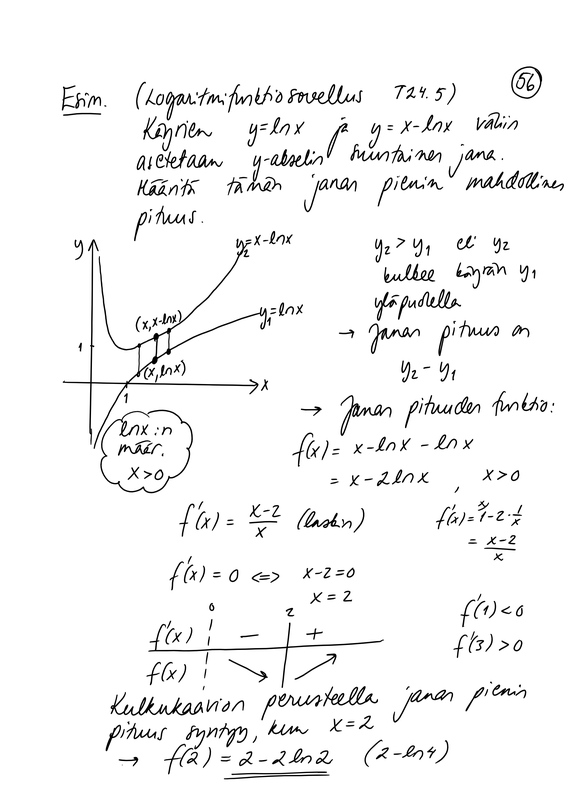 56
Esim. (Logaritmifunktio sovellus T24.5)
Käyrien y=lnx ja y = x-lnx väliin
asetetaan y-akselin suuntainen jana.
Määritä tämän janan pienin mahdollinen
pituus.
y
y₂=x-lnx
(x, x-lnx)
y₁=lnx
1
(x, lnx)
x
1
lnx:n
määr.
x>0
y₂ > y₁ eli y₂
kulkee käyrän y₁
yläpuolella
→ Janan pituus on
y₂ - y₁
→ Janan pituuden funktio:
f(x) = x-lnx - lnx
= x - 2lnx , x>0
f'(x) = x-2/x (laskin)
f'(x) = 1-2·1/x
= x-2/x
f'(x) = 0 <=> x-2=0
x = 2
0 2
f'(x) - +
f(x)
f'(1) < 0
f'(3) > 0
Kulkukaavion perusteella janan pienin
pituus syntyy, kun x=2
→ f(2) = 2-2ln2 (2-ln4)